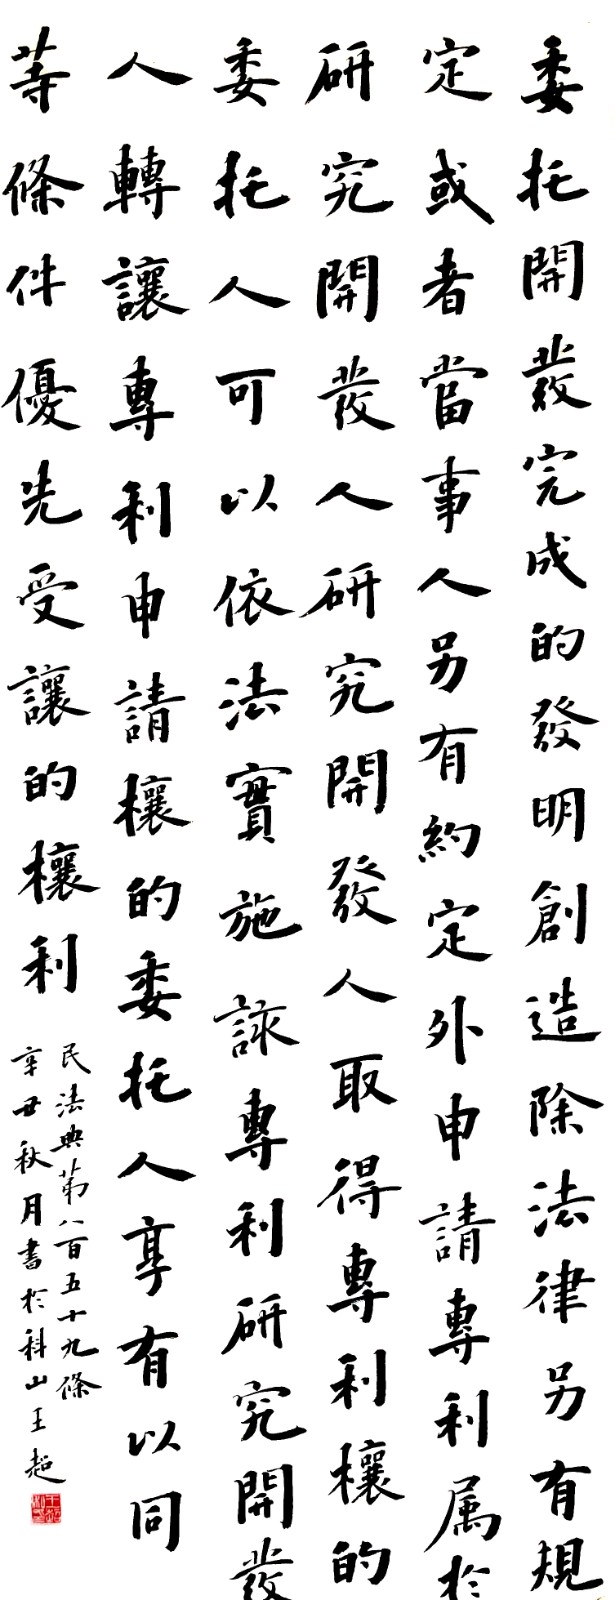 委托開發完成的發明創造除法律另有規
定或者當事人另有約定外申請專利属於
研究開發人研究開發人取得專利欀的
委托人可以依法實施該專利研究開發
人轉讓專利申請欀的委托人享有以同
等條件優先受讓的欀利
民法典第八百五十九條
辛丑秋月書於科山王超